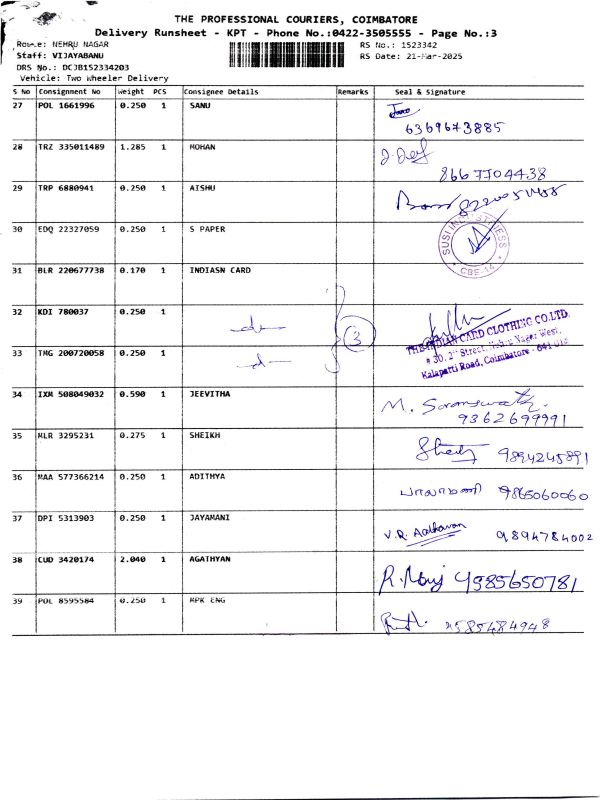 THE PROFESSIONAL COURIERS, COIMBATORE
Delivery Runsheet - KPT - Phone No.:0422-3505555 - Page No.:3
Route: NEHRU NAGAR RS No.: 1523342
Staff: VIJAYABANU RS Date: 21-Mar-2025
DRS No.: DCJB152334203
Vehicle: Two Wheeler Delivery
S No Consignment No Weight PCS Consignee Details Remarks Seal & Signature
27 POL 1661996 0.250 1 SANU
6369673885
28 TRZ 335011489 1.285 1 MOHAN
8667704438
29 TRP 6880941 0.250 1 AISHU
30 EDQ 22327059 0.250 1 S PAPER
CBE-14
31 BLR 220677738 0.170 1 INDIASN CARD
32 KDI 780037 0.250 1
3
THE INDIAN CARD CLOTHING CO.LTD.
# 30, 2nd Street, Nehru Nagar West,
Kalapatti Road, Coimbatore - 641 014
33 TMG 200720058 0.250 1
34 IXM 508049032 0.590 1 JEEVITHA M. Saraswathi.
9362699991
35 MLR 3295231 0.275 1 SHEIKH
9894245891
36 MAA 577366214 0.250 1 ADITHYA பாலாமணி 9865060060
37 DPI 5313903 0.250 1 JAYAMANI V.R. Aadhavan 9894784002
38 CUD 3420174 2.040 1 AGATHYAN
9585650781
39 POL 8595584 0.250 1 MPK ENG
9585484948